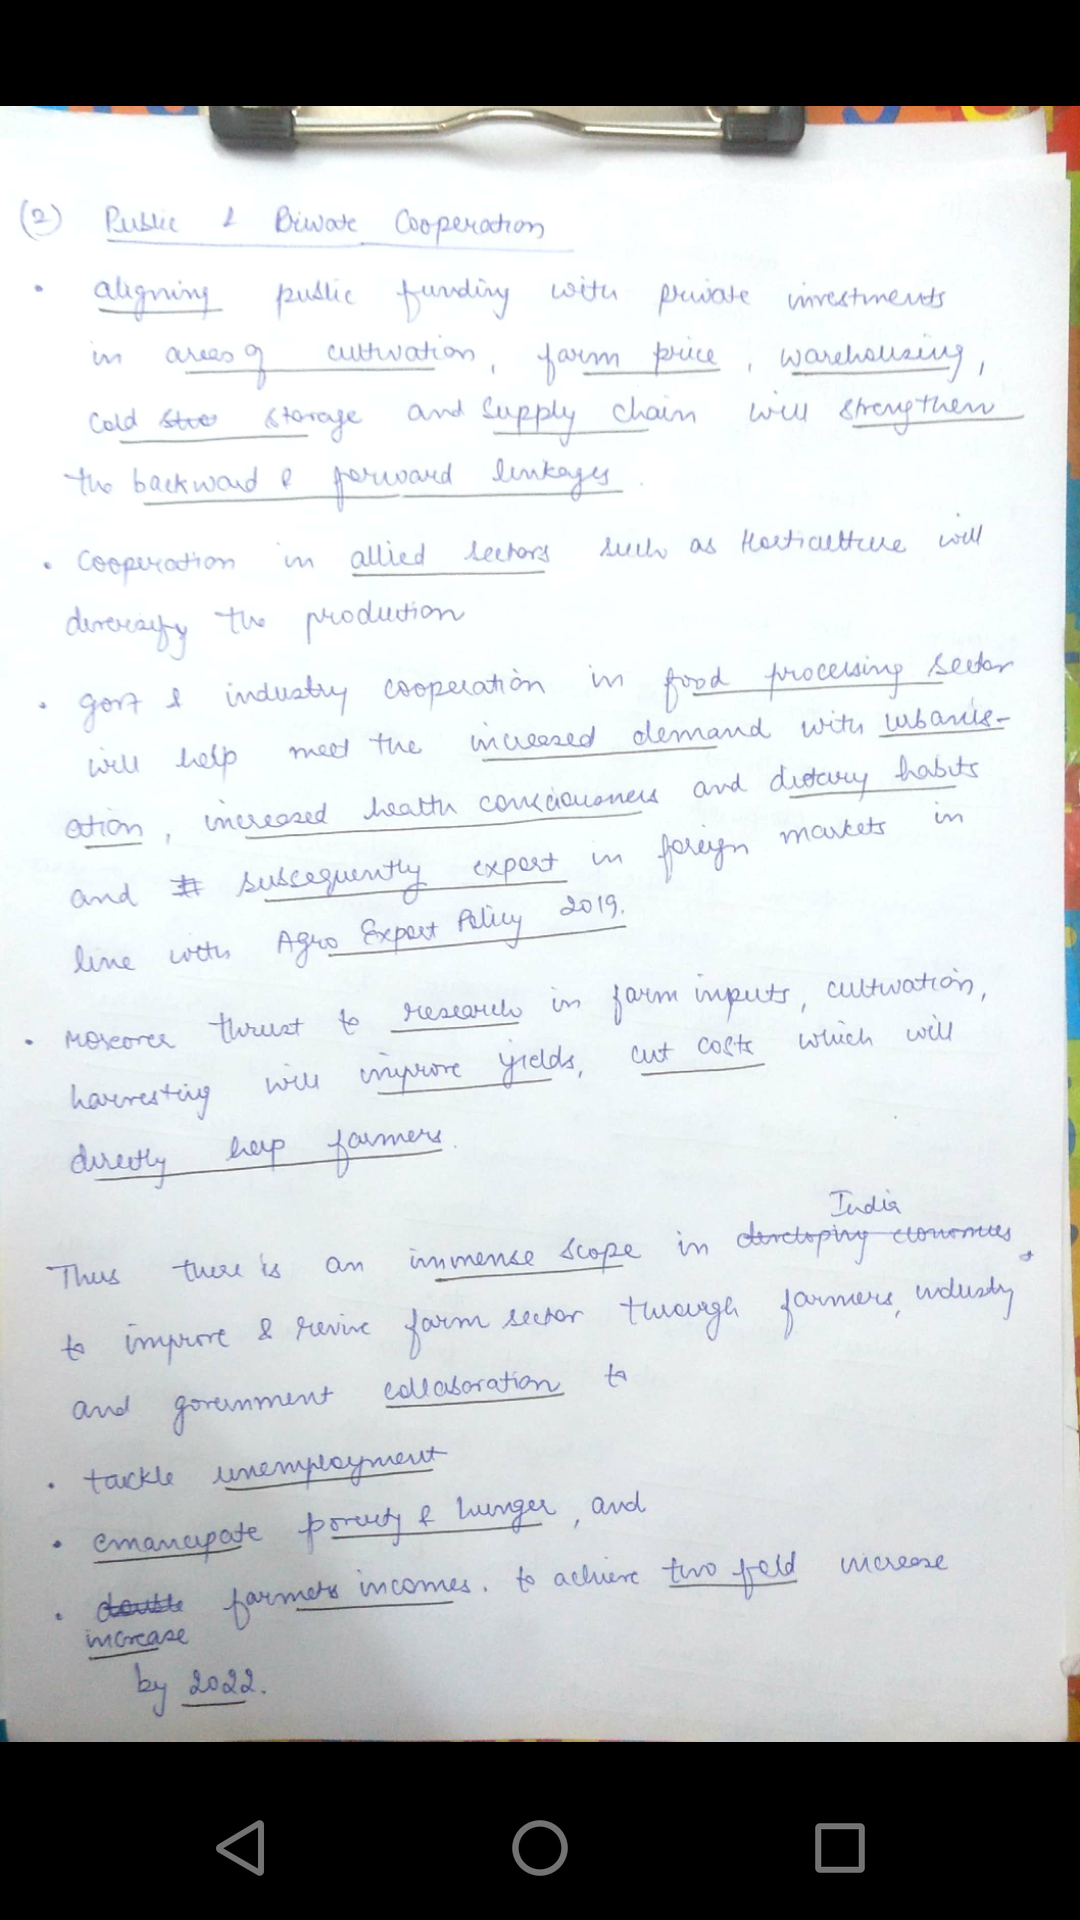 (2) Public & Private Cooperation
• aligning public funding with private investments
in areas of cultivation, farm price, warehousing,
cold storage and supply chain will strengthen
the backward & forward linkages.
• Cooperation in allied sectors such as Horticulture will
diversify the production
• govt & industry cooperation in food processing sector
will help meet the increased demand with urbanis-
ation, increased health consciousness and dietary habits
and subsequently export in foreign markets in
line with Agro Export Policy 2019.
• Moreover thrust to research in farm inputs, cultivation,
harvesting will improve yields, cut costs which will
directly help farmers.
India
Thus there is an immense scope in developing economies,
to improve & revive farm sector through farmers, industry
and government collaboration to
• tackle unemployment
• emancipate poverty & hunger, and
• double farmers incomes. to achieve two fold increase
increase
by 2022.